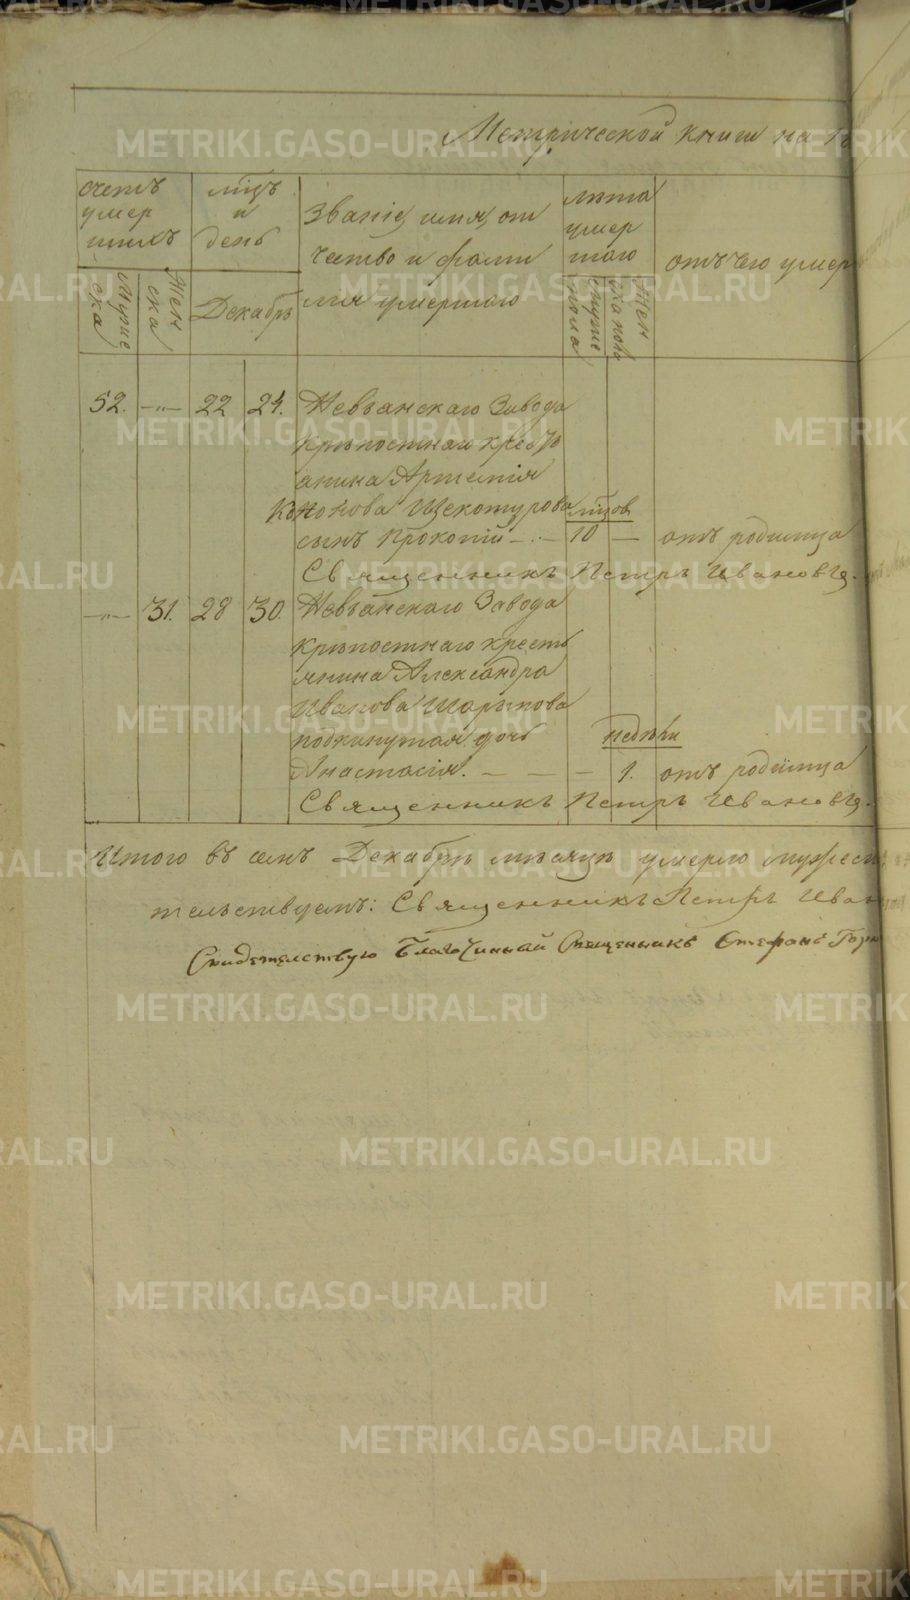 Метрической книги на 18
счетъ умершихъ
мцъ и день
Званіе, имя, отчество и фамилія умершаго
лѣта умершаго
отъ чего умеръ
Мужеска
Женска
Декабрь
Мужеска пола
Женска пола
52. —„— 22 24. Невьянскаго Завода
крѣпостнаго кресть
янина Артемія
Кононова Щекотурова мцовъ
сынъ Прокопій — . — 10 — отъ родимца
Священникъ Петръ Ивановъ
—„— 31. 28 30. Невьянскаго Завода
крѣпостнаго кресть
янина Александра
Иванова Шарыпова
подкинутая дочь недѣли
Анастасія. — — — 1. отъ родимца
Священникъ Петръ Ивановъ
Итого въ семъ Декабрѣ мѣсяцѣ умерло мужеск
тельствуемъ: Священникъ Петръ Иван
Свидетелствую Благочинный Священникъ Стефанъ
METRIKI.GASO-URAL.RU